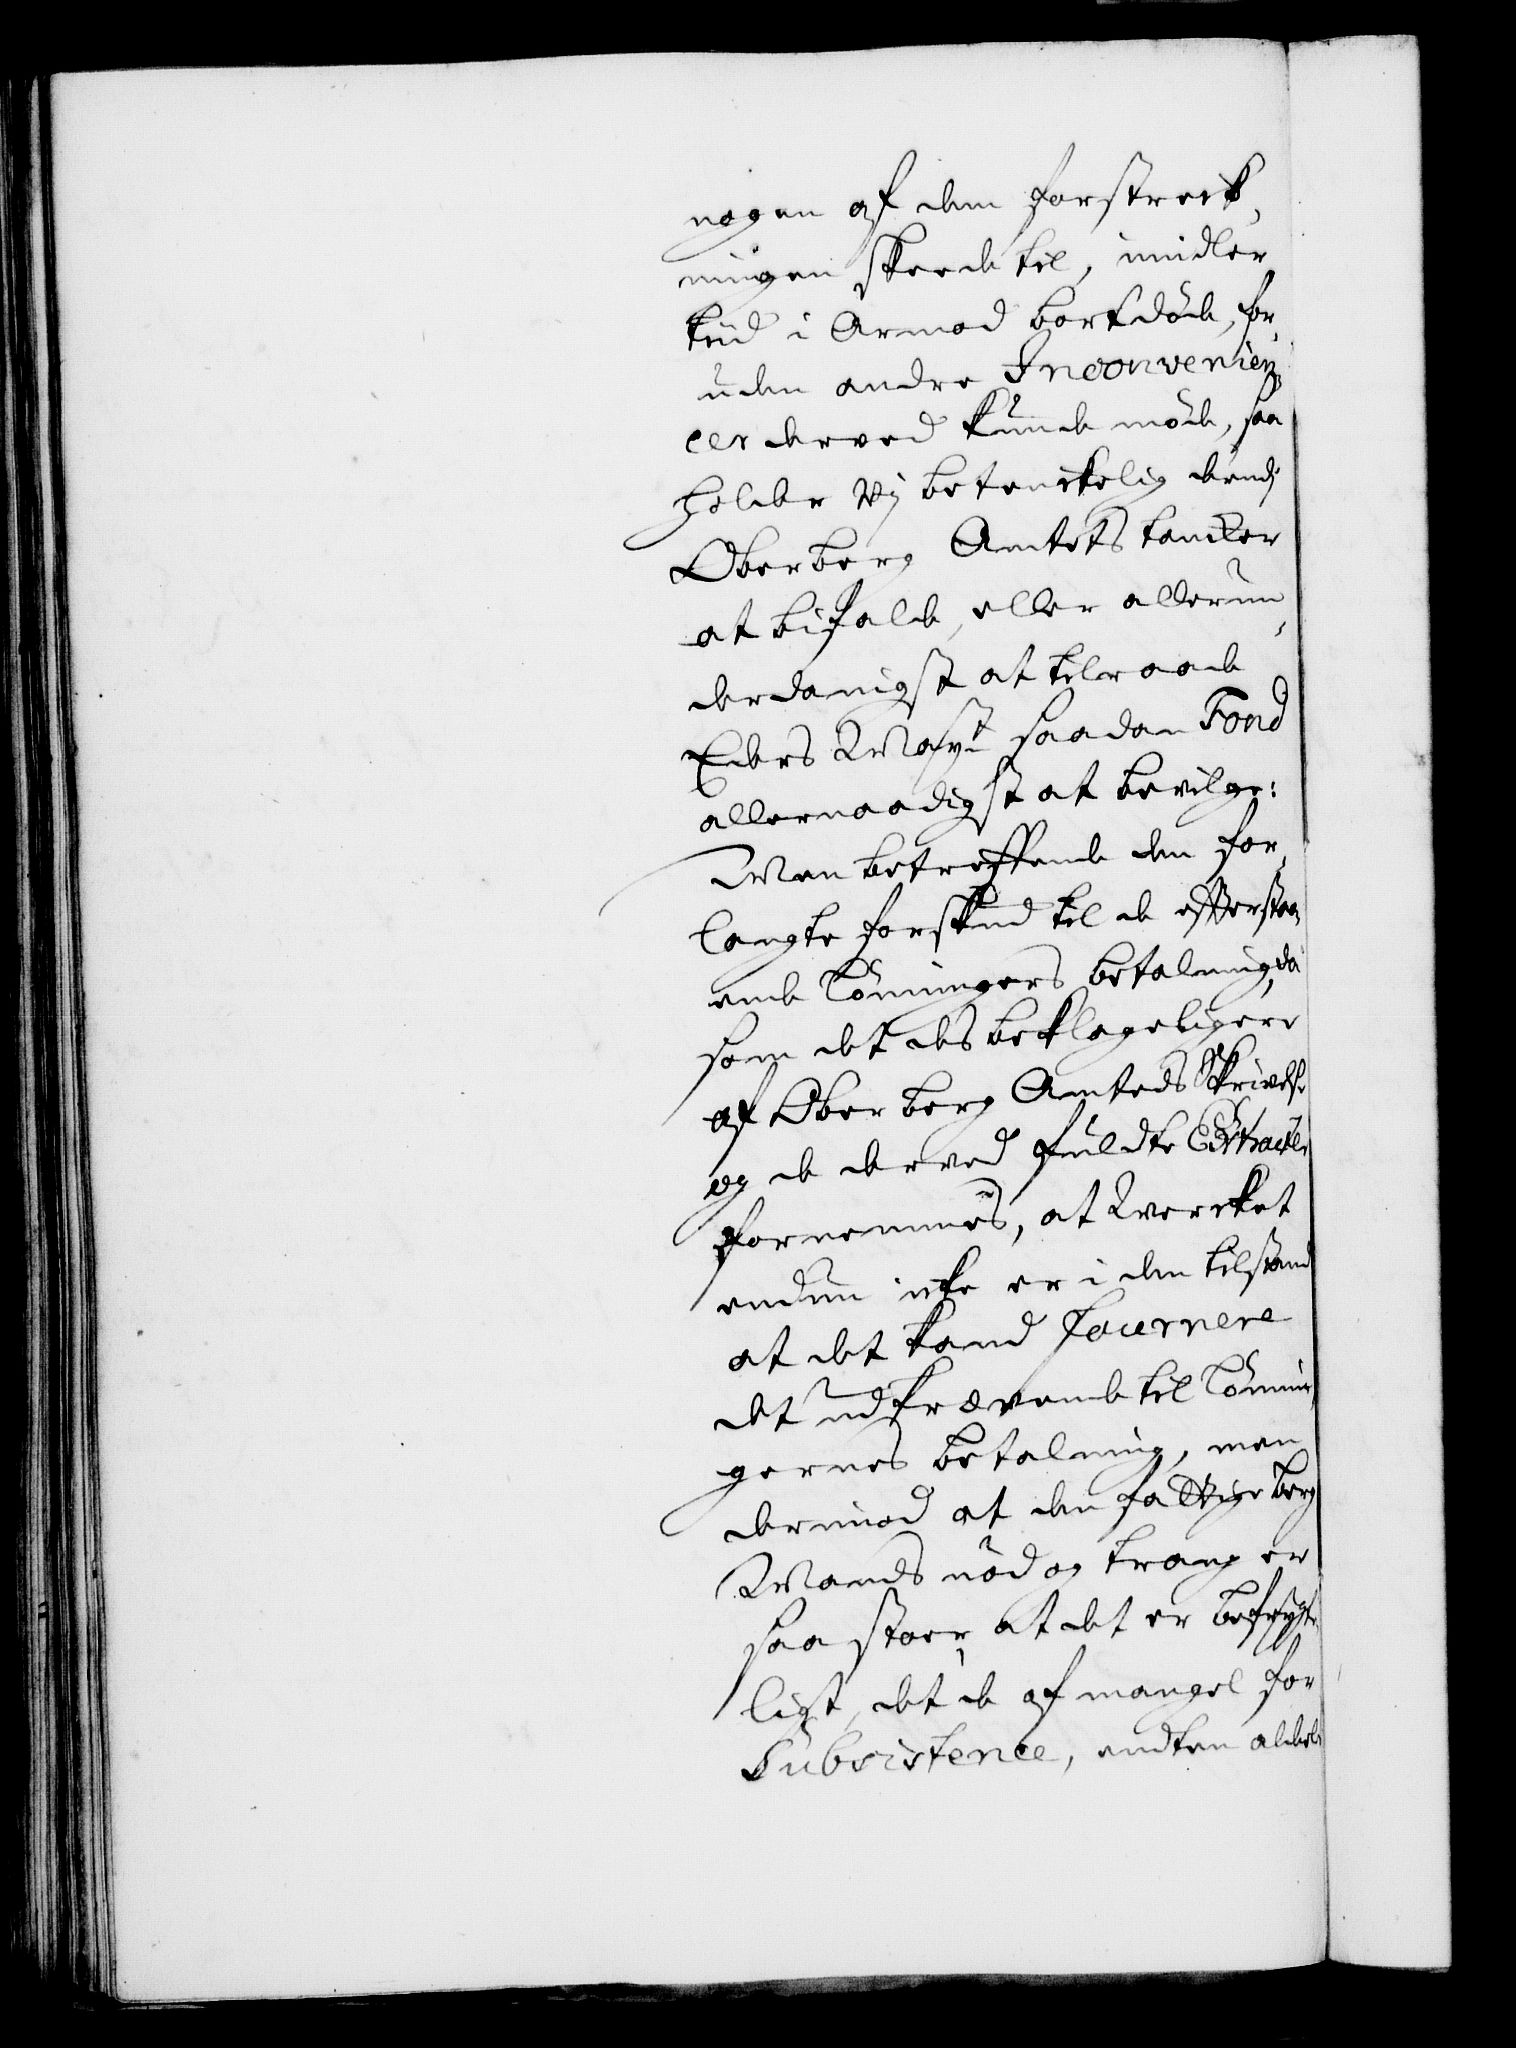 nogen af dem forstreck,
ningen skeede til, imidler
tiid i Armod bortdöde, for,
uden andre Inconvenien,
cer derved kunde möde, saa
holder Vj betenckelig dendj
Oberberg Amtets tancker
at bifalde, eller allerun,
derdanigst at tilraade
Eders Mayt saadan Fond
allernaadigst at bevilge:
Men betreffende den for,
langte forskud til de efterstaa,
ende Lönningers betalning, da
som det des beklageligere
af Ober berg Amteds Skrivelse
og de derved fuldte Extracter
fornemmes, at Wercket
endnu icke er i den tilstand
at det kand fournere
det udkrævende til Lönnin,
gernes betalning, men
derimod at den fattige berg
Mands nöd og trang er
saa stoer, at det er befrygte,
ligt, det de af mangel for
Subsistence, endten aldeles